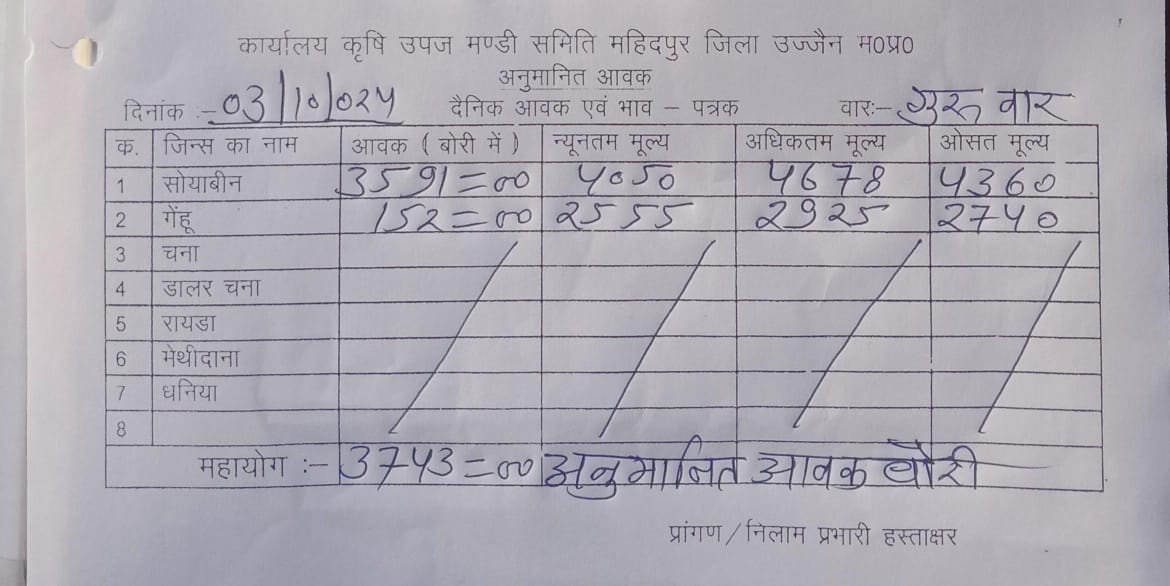 कार्यालय कृषि उपज मण्डी समिति महिदपुर जिला उज्जैन म0प्र0
अनुमानित आवक
दिनांक :- 03/10/024 दैनिक आवक एवं भाव – पत्रक वारः- गुरू वार
क. जिन्स का नाम आवक ( बोरी में ) न्यूनतम मूल्य अधिकतम मूल्य ओसत मूल्य
1 सोयाबीन 3591=00 4050 4678 4360
2 गेंहू 152=00 2555 2925 2740
3 चना
4 डालर चना
5 रायडा
6 मेथीदाना
7 धनिया
8
महायोग :- 3743=00 अनुमानित आवक बोरी
प्रांगण/निलाम प्रभारी हस्ताक्षर